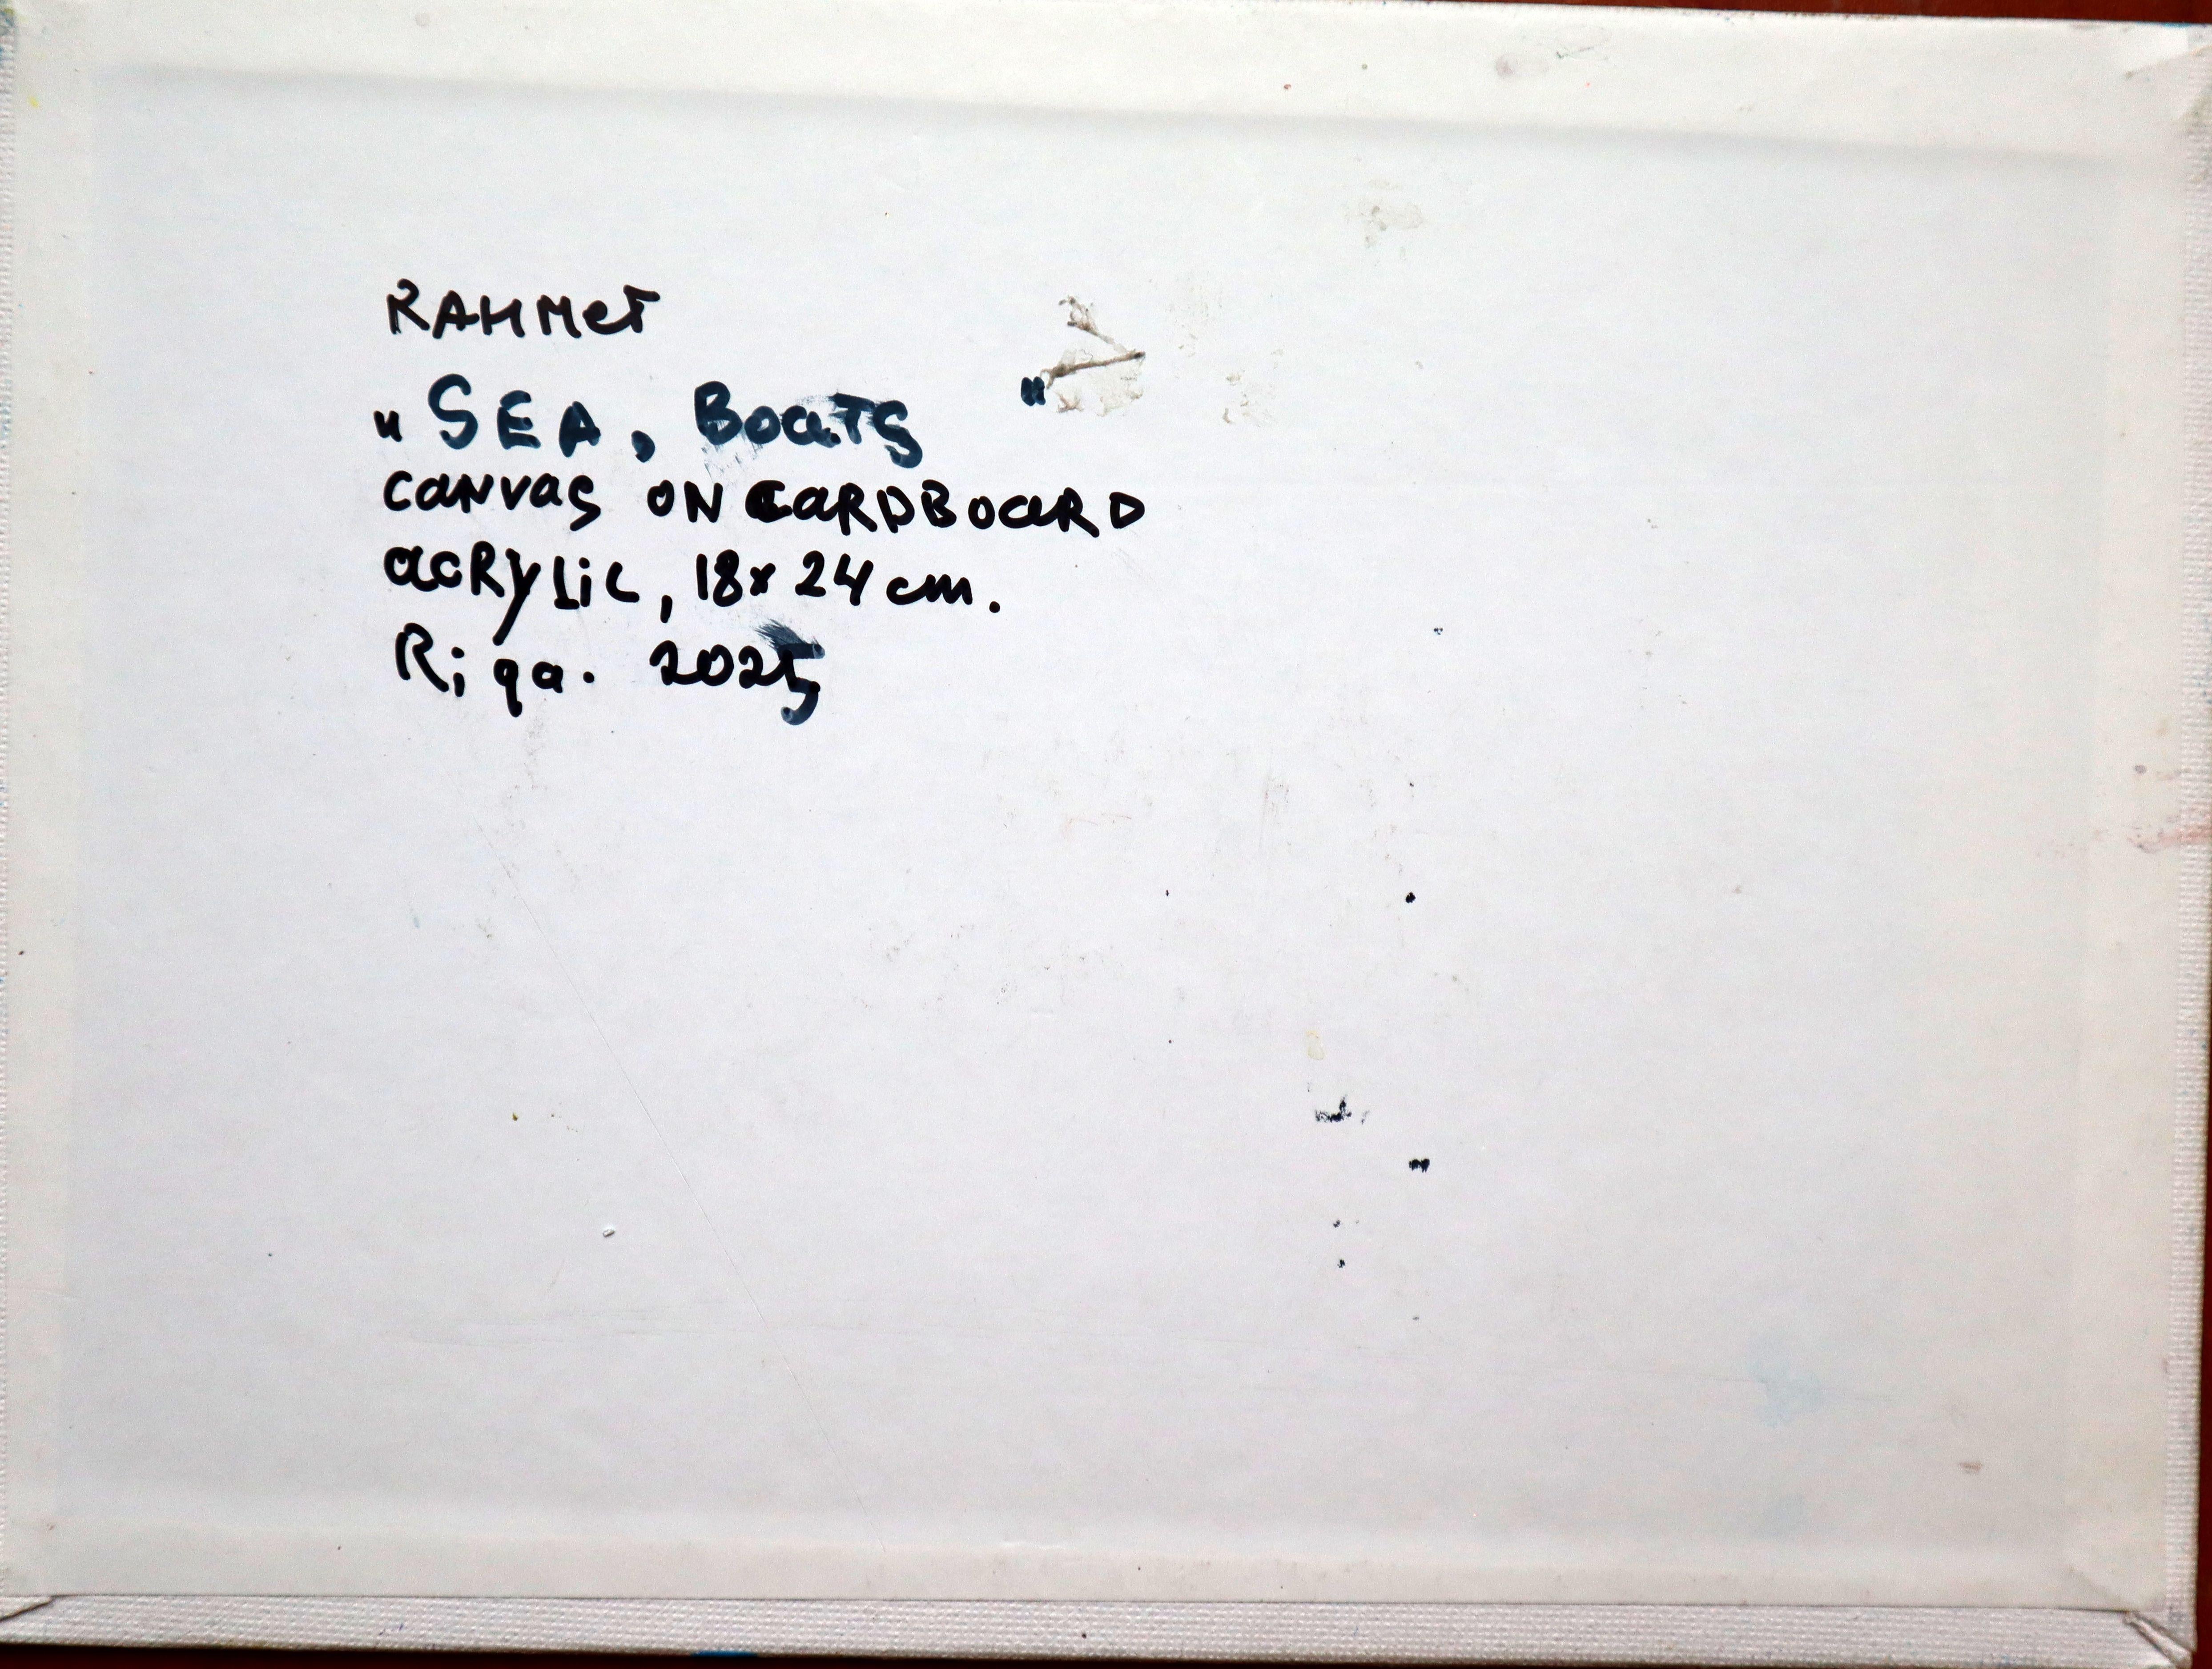 RAHMeT
„SEA, BoaTS "
CaNvas ON CaRDBoaRD
acRyLiC, 18x24 cm.
Riga. 2025